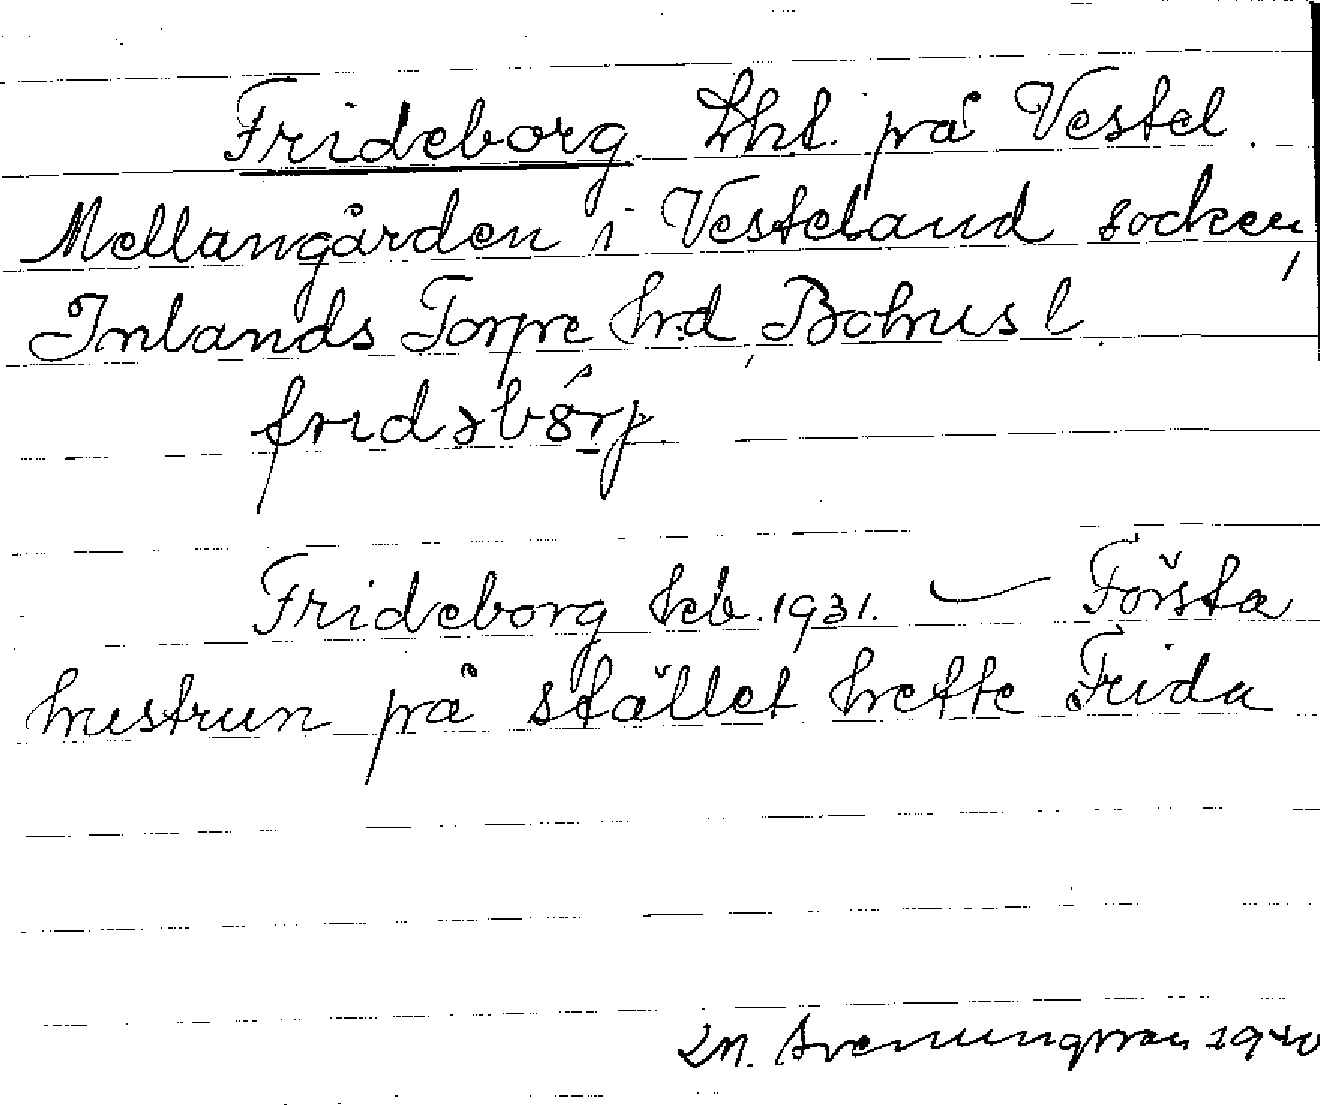 Frideborg Lht. på Vestel.
Mellangården i Vesteland socken,
Inlands Torpe hrd, Bohusl.
fridəbórj
Frideborg Leb. 1931. — Första
hustrun på stället hette Frida
Svenungsson 1940